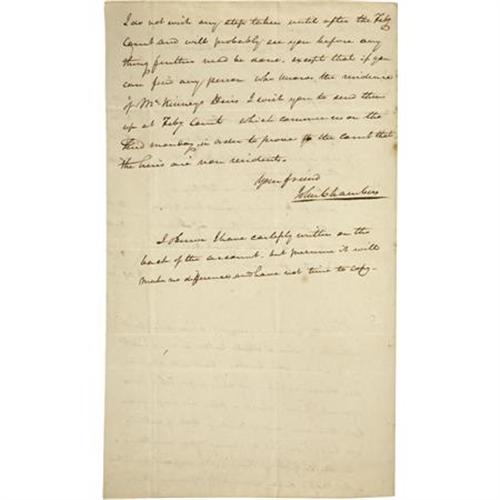 I do not wish any step taken until after the Feby
Court and will probably see you before any
thing further need be done. except that if you
can find any person who knows the residence
of McKinneys Heirs I wish you to send them
up at Feby Court which commences on the
third monday, in order to prove to the Court that
the heirs are non residents.
Your friend
John Chambers
I observe I have carelessly written on the
back of the account. but presume it will
make no difference and have not time to copy.